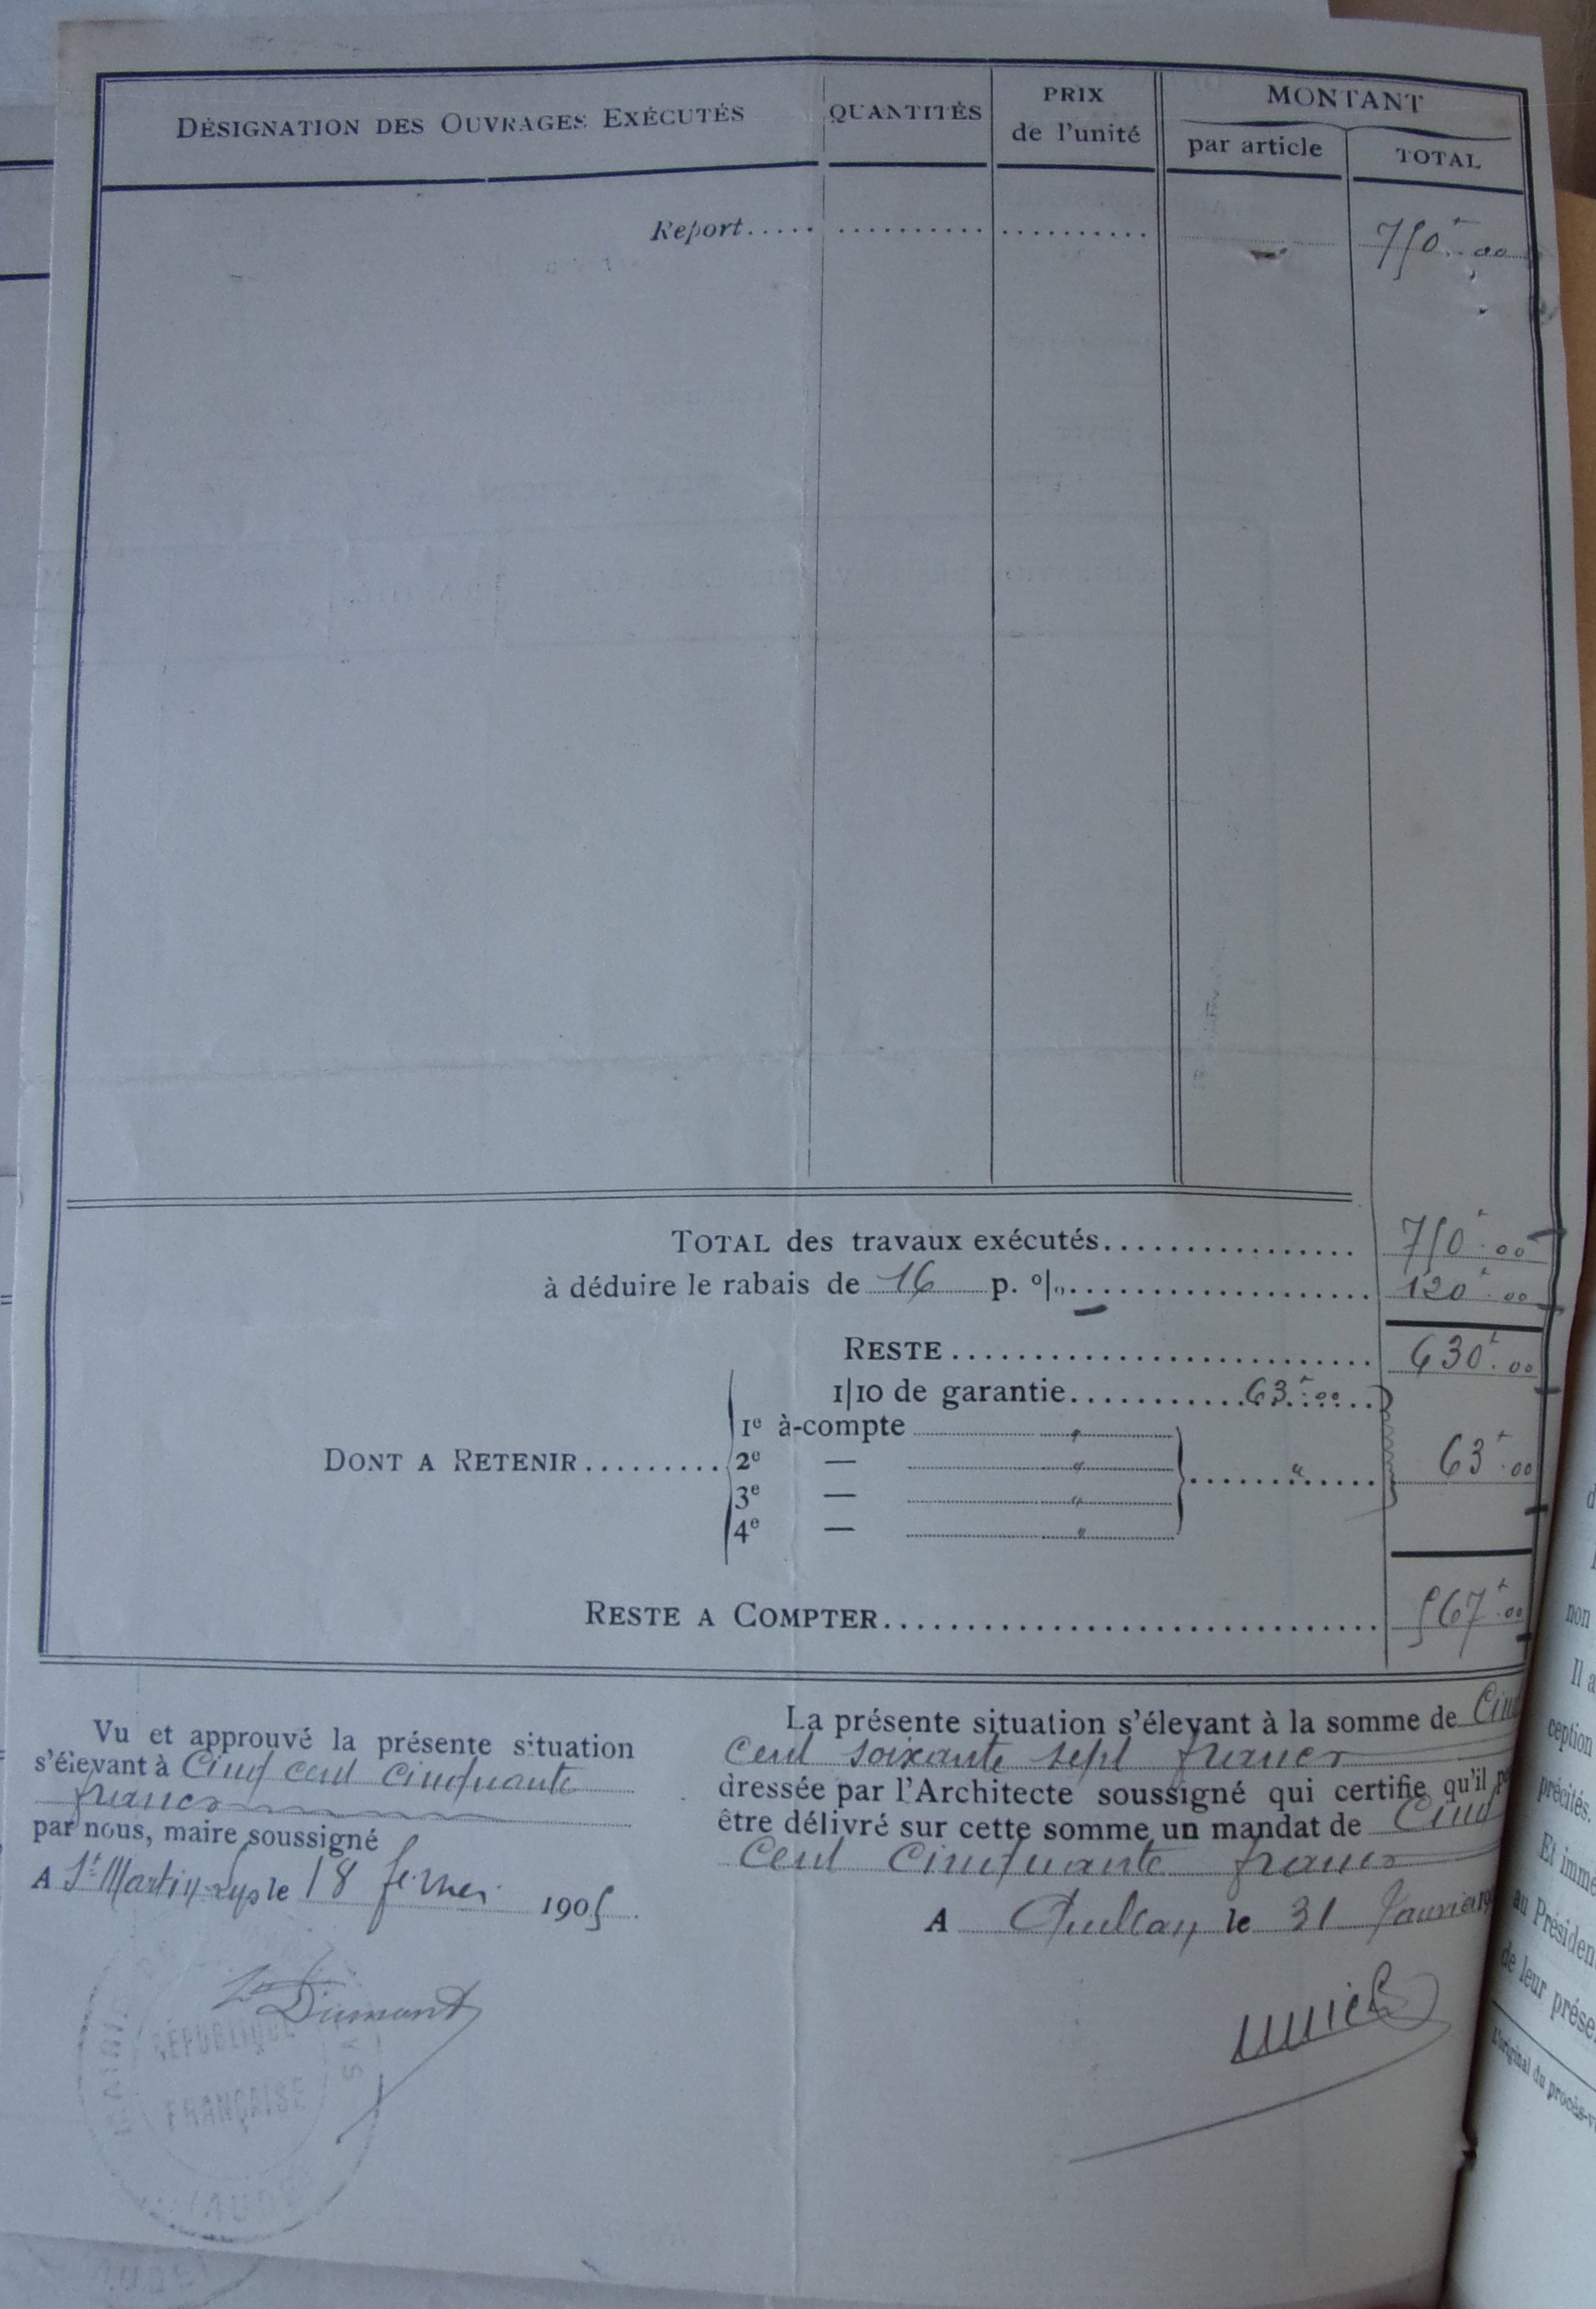 DÉSIGNATION DES OUVRAGES EXÉCUTÉS
QUANTITÉS
PRIX
de l'unité
MONTANT
par article
TOTAL
Report.... 750f.00
TOTAL des travaux exécutés................ 750f.00
à déduire le rabais de 16 p. %.................... 120f.00
RESTE.......................... 630f.00
1/10 de garantie...........63f.00....
1e à-compte "
DONT A RETENIR.........2e — " ......"..... 63f.00
3e — "
4e — "
RESTE A COMPTER.............................. 567f.00
Vu et approuvé la présente situation
s'élevant à Cinq cent cinquante
francs
par nous, maire soussigné
A St Martin Lys le 18 février 1905
Dumont
La présente situation s'élevant à la somme de Cinq
cent soixante sept francs
dressée par l'Architecte soussigné qui certifie qu'il
être délivré sur cette somme un mandat de Cinq
Cent Cinquante francs
A Quillan, le 31 Janvier 19
RÉPUBLIQUE
FRANÇAISE
MAIRIE
AUDE
non
Il a
ception
précités.
Et immé
au Présiden
de leur prése
L'original du procès-v